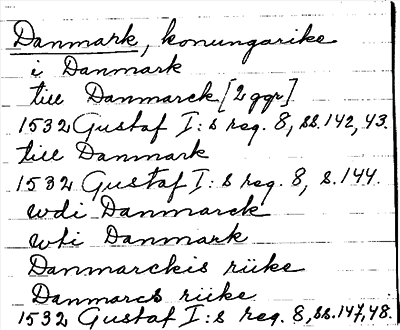 Danmark, konungarike
i Danmark
till Danmarck [2 ggr]
1532 Gustaf I:s reg. 8, ss. 142, 43.
till Danmark
1532 Gustaf I:s reg. 8, s. 144.
wdi Danmarck
wti Danmark
Danmarckis riike
Danmarcs riike
1532 Gustaf I:s reg. 8, ss. 147, 48.